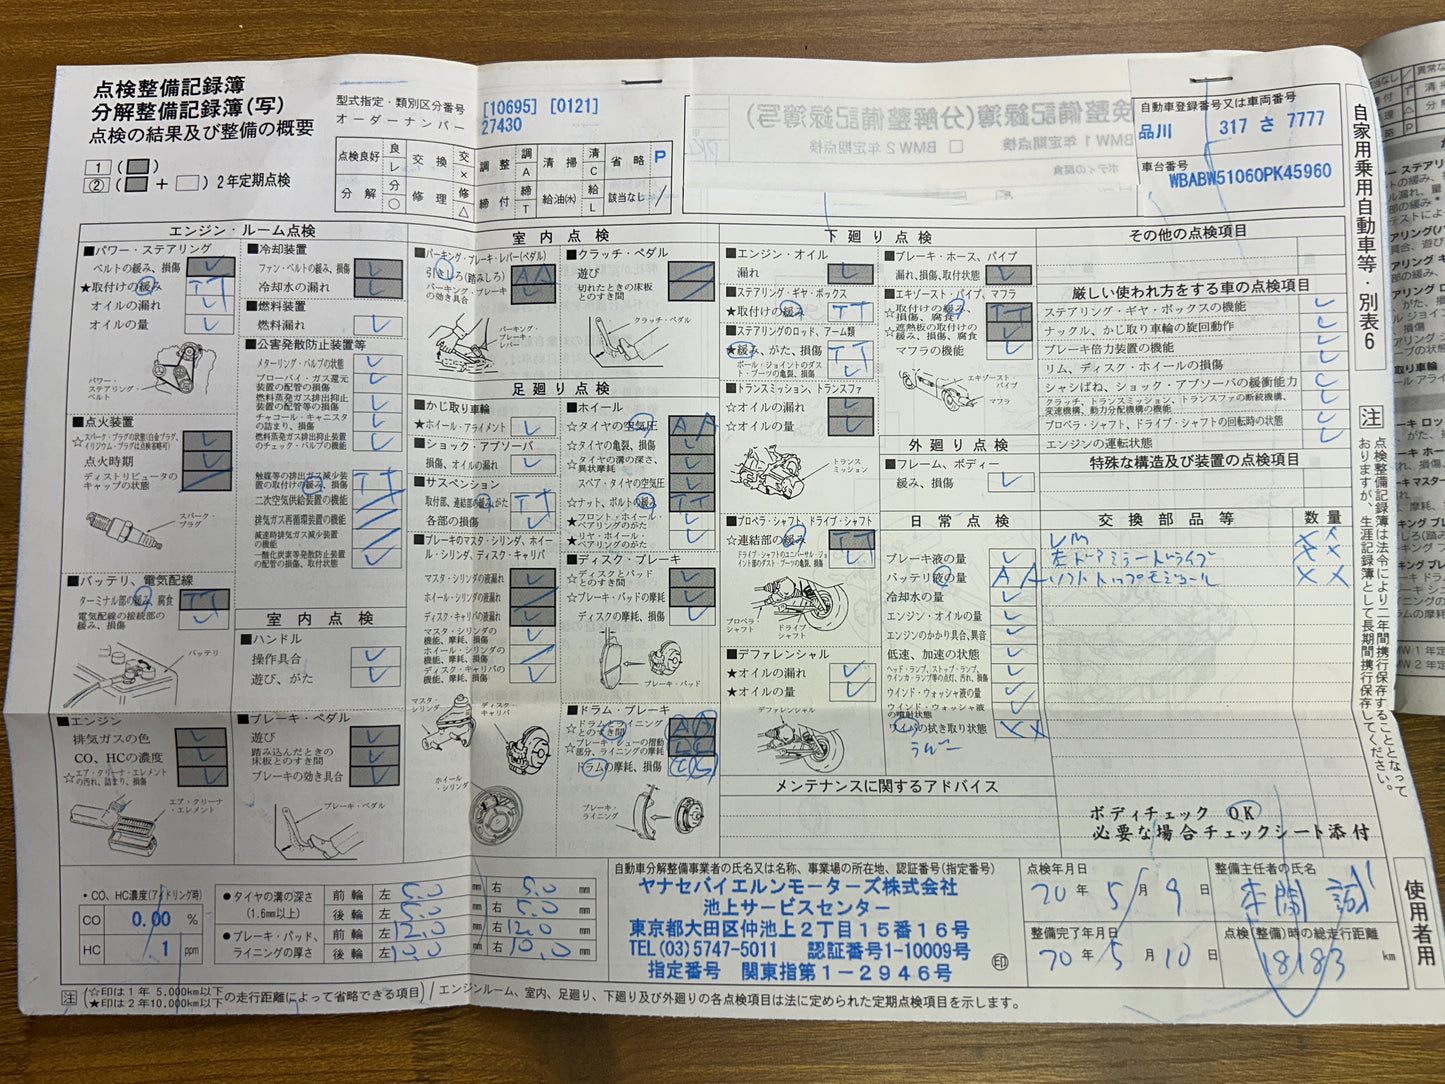 点検整備記録簿
分解整備記録簿(写)
点検の結果及び整備の概要
1 ( )
② ( + ) 2年定期点検
型式指定・類別区分番号 [10695] [0121]
オーダーナンバー 27430
点検良好 良 レ 交換 交 × 調整 調 A 清掃 清 C 省略 P
分解 分 ○ 修理 修 △ 締付 締 T 給油(水) 給 L 該当なし /
自動車登録番号又は車両番号
品川 317 さ 7777
車台番号
WBABW51060PK45960
自家用乗用自動車等・別表6
エンジン・ルーム点検
■パワー・ステアリング
ベルトの緩み、損傷 レ
★取付けの緩み T T
オイルの漏れ レ
オイルの量 レ
パワー・ステアリング・ベルト
■点火装置
☆スパーク・プラグの状態(白金プラグ、イリジウム・プラグは点検省略可) レ
点火時期 レ
ディストリビュータのキャップの状態 /
スパーク・プラグ
■バッテリ、電気配線
ターミナル部の緩み、腐食 T T
電気配線の接続部の緩み、損傷 レ
バッテリ
■エンジン
排気ガスの色 レ
CO、HCの濃度 レ
☆エア・クリーナ・エレメントの汚れ、詰まり、損傷 レ
エア・クリーナ・エレメント
■冷却装置
ファン・ベルトの緩み、損傷 レ
冷却水の漏れ レ
■燃料装置
燃料漏れ レ
■公害発散防止装置等
メターリング・バルブの状態 レ
ブローバイ・ガス還元装置の配管の損傷 レ
燃料蒸発ガス排出抑止装置の配管等の損傷 レ
チャコール・キャニスタの詰まり、損傷 レ
燃料蒸発ガス排出抑止装置のチェック・バルブの機能 レ
触媒等の排出ガス減少装置の取付けの緩み、損傷 T T
二次空気供給装置の機能 /
排気ガス再循環装置の機能 /
減速時排気ガス減少装置の機能 /
一酸化炭素等発散防止装置の配管の損傷、取付状態 /
室内点検
■ハンドル
操作具合 レ
遊び、がた レ
■ブレーキ・ペダル
遊び レ
踏み込んだときの床板とのすき間 レ
ブレーキの効き具合 レ
ブレーキ・ペダル
室内点検
■パーキング・ブレーキ・レバー(ペダル)
引きしろ(踏みしろ) A A
パーキング・ブレーキの効き具合 レ
パーキング・ブレーキ・レバー
■クラッチ・ペダル
遊び /
切れたときの床板とのすき間 /
クラッチ・ペダル
足廻り点検
■かじ取り車輪
★ホイール・アライメント レ
■ショック・アブソーバ
損傷、オイルの漏れ レ
■サスペンション
取付部、連結部の緩み、がた T T
各部の損傷 レ
■ブレーキのマスタ・シリンダ、ホイール・シリンダ、ディスク・キャリパ
マスタ・シリンダの液漏れ レ
ホイール・シリンダの液漏れ /
ディスク・キャリパの液漏れ レ
マスタ・シリンダの機能、摩耗、損傷 レ
ホイール・シリンダの機能、摩耗、損傷 /
ディスク・キャリパの機能、摩耗、損傷 レ
マスタ・シリンダ
ディスク・キャリパ
ホイール・シリンダ
■ホイール
☆タイヤの空気圧 A A
☆タイヤの亀裂、損傷 レ
☆タイヤの溝の深さ、異状摩耗 レ
スペア・タイヤの空気圧 レ
☆ナット、ボルトの緩み T T
★フロント・ホイール・ベアリングのがた レ
★リヤ・ホイール・ベアリングのがた レ
■ディスク・ブレーキ
☆ディスクとパッドとのすき間 レ
☆ブレーキ・パッドの摩耗 レ
ディスクの摩耗、損傷 レ
ブレーキ・パッド
■ドラム・ブレーキ
☆ドラムとライニングとのすき間 A A
☆ブレーキ・シューの摺動部分、ライニングの摩耗 L C
ドラムの摩耗、損傷
ブレーキ・ライニング
下廻り点検
■エンジン・オイル
漏れ レ
■ステアリング・ギヤ・ボックス
★取付けの緩み T T
■ステアリングのロッド、アーム類
★緩み、がた、損傷 T T
ボール・ジョイントのダスト・ブーツの亀裂、損傷 レ
■トランスミッション、トランスファ
☆オイルの漏れ レ
☆オイルの量 レ
トランスミッション
■プロペラ・シャフト、ドライブ・シャフト
☆連結部の緩み T T
ドライブ・シャフトのユニバーサル・ジョイント部のダスト・ブーツの亀裂、損傷 レ
プロペラ・シャフト
ドライブ・シャフト
■デファレンシャル
★オイルの漏れ レ
★オイルの量 レ
デファレンシャル
■ブレーキ・ホース、パイプ
漏れ、損傷、取付状態 レ
■エキゾースト・パイプ、マフラ
☆取付けの緩み、損傷、腐食 T T
☆遮熱板の取付けの緩み、損傷、腐食
マフラの機能 レ
エキゾースト・パイプ
マフラ
外廻り点検
■フレーム、ボディー
緩み、損傷 レ
日常点検
ブレーキ液の量 レ
バッテリ液の量 A A
冷却水の量 レ
エンジン・オイルの量 レ
エンジンのかかり具合、異音 レ
低速、加速の状態 レ
ヘッド・ランプ、ストップ・ランプ、ウインカ・ランプ等の点灯、汚れ、損傷 レ
ウインド・ウォッシャ液の量 レ
ウインド・ウォッシャ液の噴射状態 レ
ワイパの拭き取り状態 × ×
その他の点検項目
厳しい使われ方をする車の点検項目
ステアリング・ギヤ・ボックスの機能 レ
ナックル、かじ取り車輪の旋回動作 レ
ブレーキ倍力装置の機能 レ
リム、ディスク・ホイールの損傷 レ
シャシばね、ショック・アブソーバの緩衝能力 レ
クラッチ、トランスミッション、トランスファの断続機構、変速機構、動力分配機構の機能 レ
プロペラ・シャフト、ドライブ・シャフトの回転時の状態 レ
エンジンの運転状態 レ
特殊な構造及び装置の点検項目
交換部品等 数量
左ドアミラードライブ × ×
ソフトトップモジュール × ×
メンテナンスに関するアドバイス
ボディチェック OK
必要な場合チェックシート添付
注 点検整備記録簿は法令により二年間携行保存することとなっておりますが、生涯記録簿として長期間携行保存してください。
使用者用
・CO、HC濃度(アイドリング時)
CO 0.00 %
HC 1 ppm
●タイヤの溝の深さ(1.6mm以上) 前輪 左 5.0 mm 右 5.0 mm
後輪 左 5.0 mm 右 5.0 mm
●ブレーキ・パッド、ライニングの厚さ 前輪 左 12.0 mm 右 12.0 mm
後輪 左 10.0 mm 右 10.0 mm
自動車分解整備事業者の氏名又は名称、事業場の所在地、認証番号(指定番号)
ヤナセバイエルンモーターズ株式会社
池上サービスセンター
東京都大田区仲池上2丁目15番16号
TEL(03)5747-5011 認証番号1-10009号
指定番号 関東指第1-2946号
印
点検年月日 20年 5月 9日
整備主任者の氏名 本間 誠
整備完了年月日 20年 5月 10日
点検(整備)時の総走行距離 18183 km
注 (☆印は1年 5,000km以下 ★印は2年10,000km以下 の走行距離によって省略できる項目) / エンジンルーム、室内、足廻り、下廻り及び外廻りの各点検項目は法に定められた定期点検項目を示します。